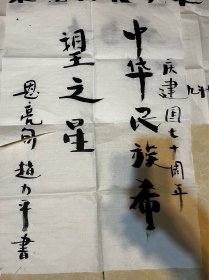 庆建国七十周年
中华民族希
望之星
恩亮句 赵力平書